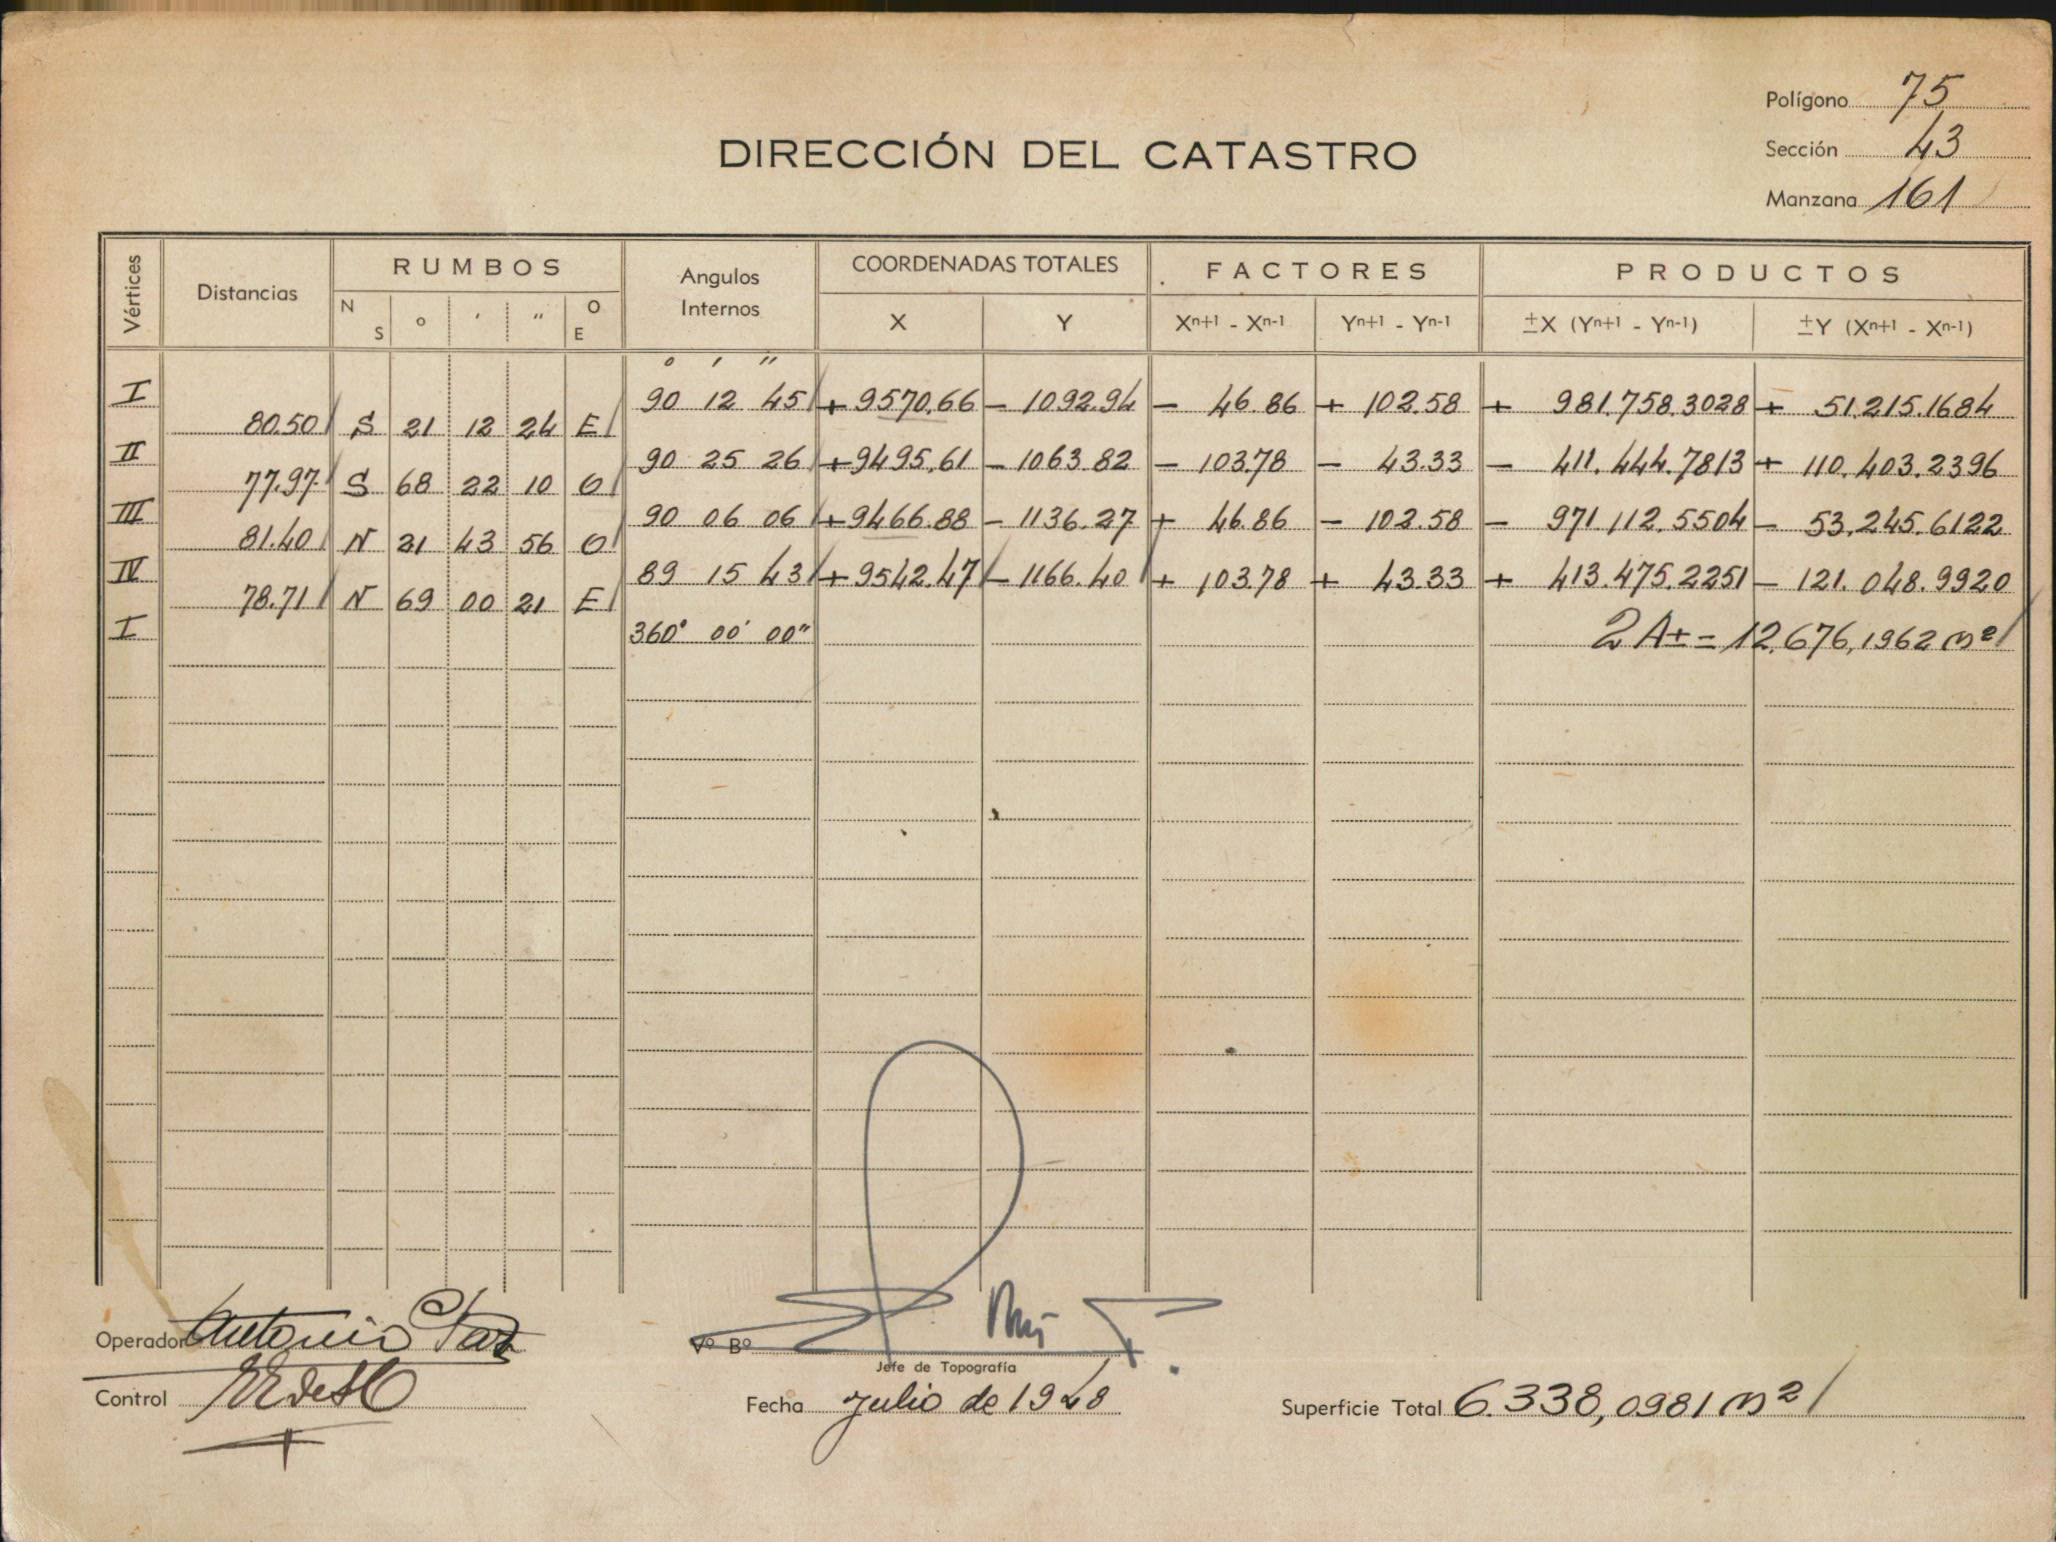 Polígono 75
DIRECCIÓN DEL CATASTRO
Sección 43
Manzana 161
Vértices Distancias RUMBOS Angulos Internos COORDENADAS TOTALES FACTORES PRODUCTOS
N S o ' " O E X Y Xn+1 - Xn-1 Yn+1 - Yn-1 ±X (Yn+1 - Yn-1) ±Y (Xn+1 - Xn-1)
o ' "
I 90 12 45 + 9570.66 - 1092.94 - 46.86 + 102.58 + 981.758.3028 + 51.215.1684
80.50 S 21 12 24 E
II 90 25 26 + 9495.61 - 1063.82 - 103.78 - 43.33 - 411.444.7813 + 110.403.2396
77.97 S 68 22 10 O
III 90 06 06 + 9466.88 - 1136.27 + 46.86 - 102.58 - 971.112.5504 - 53.245.6122
81.40 N 21 43 56 O
IV 89 15 43 + 9542.47 - 1166.40 + 103.78 + 43.33 + 413.475.2251 - 121.048.9920
78.71 N 69 00 21 E
I 360° 00' 00" 2A± = 12.676,1962 m²
Operador Antonio
Vº Bº
Jefe de Topografía
Control
Fecha Julio de 1948
Superficie Total 6.338,0981 m²